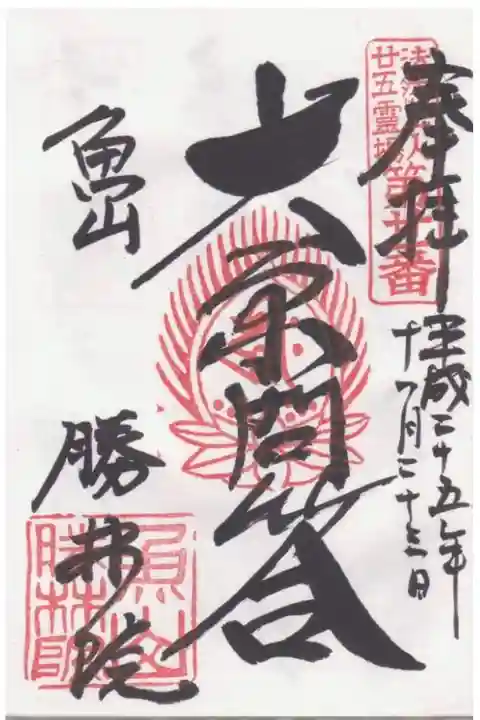 奉拝
法然上人
廿五靈場第廿一番
平成二十五年
十一月二十三日
大原問答
魚山
勝林院
魚山
勝林院